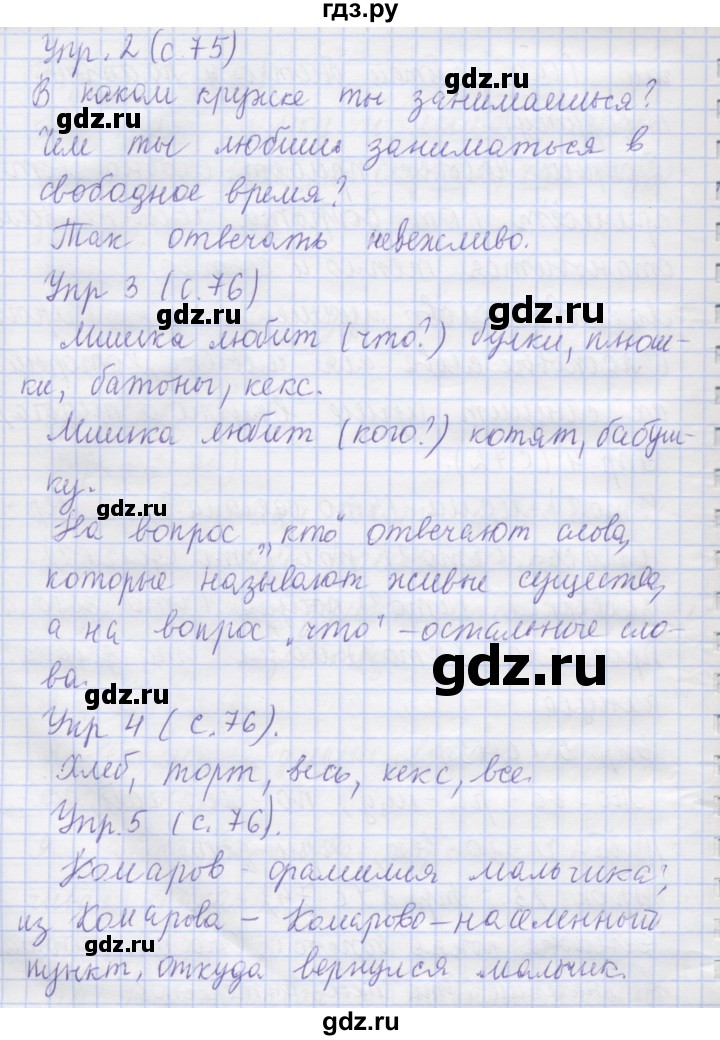 гдз.ру
Упр. 2 (с. 75)
В каком кружке ты занимаешься?
gdz.ru
gdz.ru
Чем ты любишь заниматься в
gdz.ru
свободное время?
Так отвечать невежливо.
Упр 3 (с. 76)
gdz.ru
gdz.ru
Мишка любит (что?) булки, плюш-
ки, батоны, кекс.
Мишка любит (кого?) котят, бабуш-
ку.
gdz.ru
На вопрос „кто“ отвечают слова,
которые называют живые существа,
а на вопрос „что“ – остальные сло-
gdz.ru
ва.
gdz.ru
Упр 4 (с. 76).
Хлеб, торт, весь, кекс, все.
Упр. 5 (с. 76).
Комаров – фамилия мальчика;
из Комарова – Комарово – населенный
gdz.ru
пункт, откуда вернулся мальчик.
gdz.ru